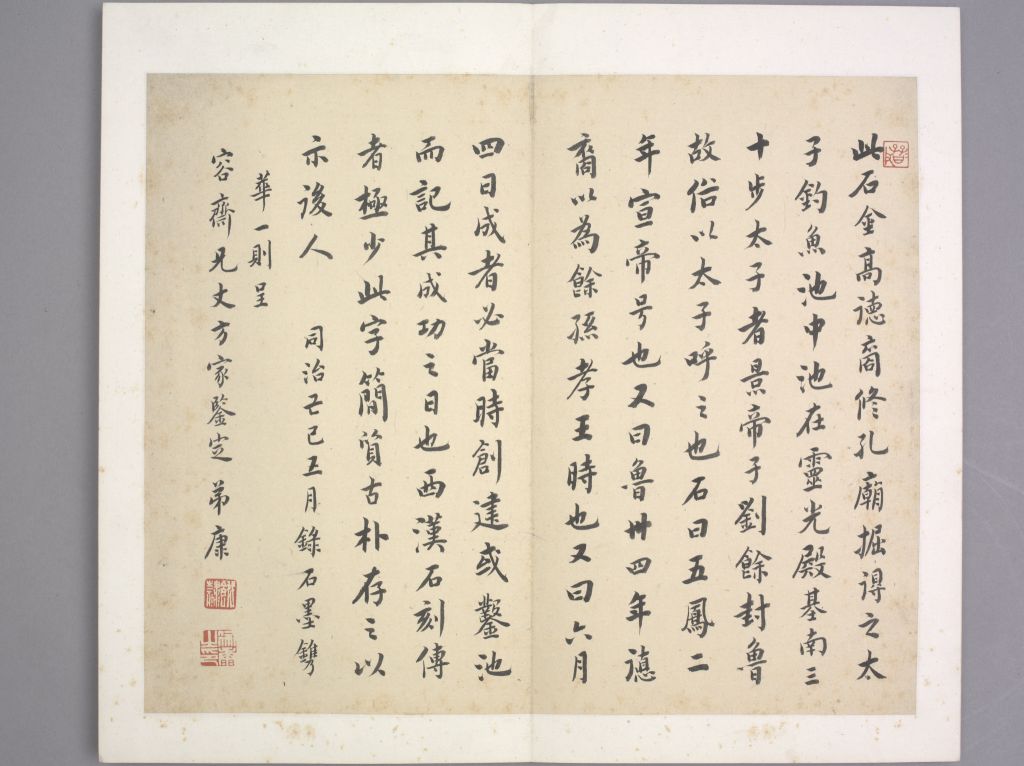 此石金高德裔修孔廟掘得之太
子釣魚池中池在靈光殿基南三
十步太子者景帝子劉餘封魯
故俗以太子呼之也石曰五鳳二
年宣帝号也又曰魯卅四年德
裔以為餘孫孝王時也又曰六月
四日成者必當時創建或鑿池
而記其成功之日也西漢石刻傳
者極少此字簡質古朴存之以
示後人 同治己巳五月錄石墨鐫
華一則呈
容齋兄丈方家鑒定 弟康